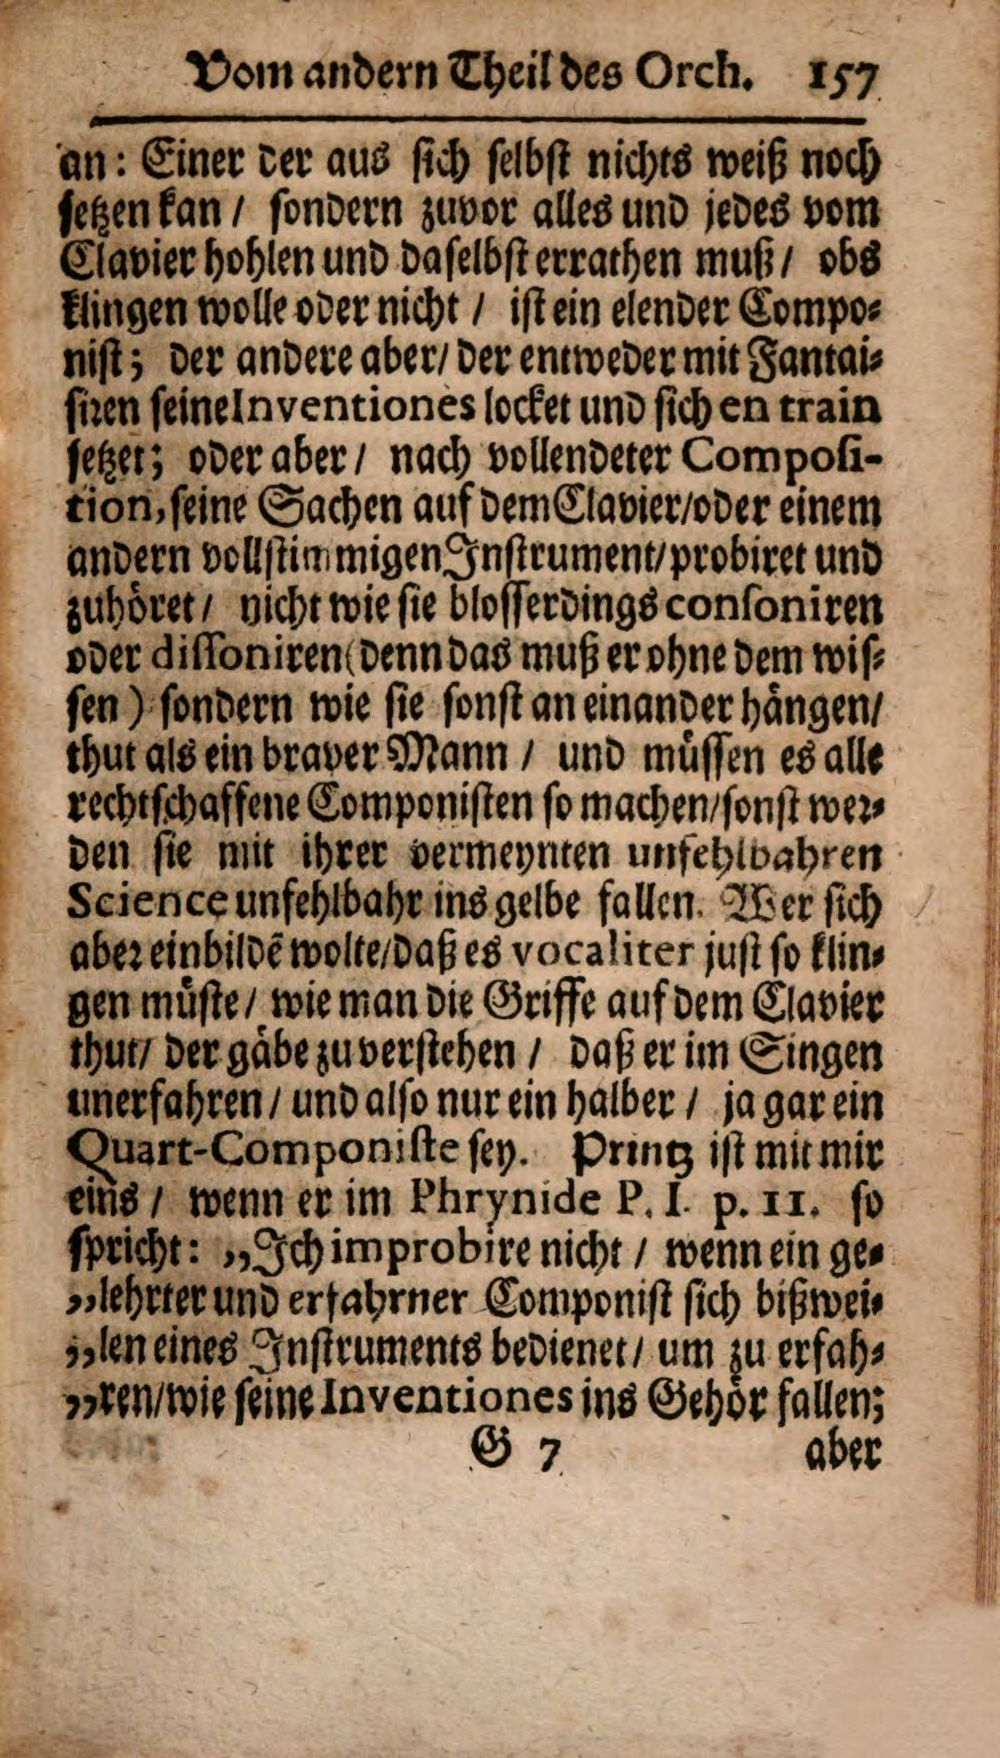 Vom andern Theil des Orch. 157
an: Einer der aus sich selbst nichts weiß noch
setzen kan / sondern zuvor alles und jedes vom
Clavier hohlen und daselbst errathen muß / obs
klingen wolle oder nicht / ist ein elender Compo⸗
nist; der andere aber / der entweder mit Fantai⸗
siren seine Inventiones locket und sich en train
setzet; oder aber / nach vollendeter Composi-
tion, seine Sachen auf dem Clavier / oder einem
andern vollstimmigen Instrument / probiret und
zuhöret / nicht wie sie blosserdings consoniren
oder dissoniren (denn das muß er ohne dem wis⸗
sen) sondern wie sie sonst an einander hängen /
thut als ein braver Mann / und müssen es alle
rechtschaffene Componisten so machen / sonst wer⸗
den sie mit ihrer vermeynten unfehlbahren
Science unfehlbahr ins gelbe fallen. Wer sich
aber einbildē wolte / daß es vocaliter just so klin⸗
gen müste / wie man die Griffe auf dem Clavier
thut / der gäbe zu verstehen / daß er im Singen
unerfahren / und also nur ein halber / ja gar ein
Quart-Componiste sey. Printz ist mit mir
eins / wenn er im Phrynide P. I. p. 11. so
spricht: „Ich improbire nicht / wenn ein ge⸗
„lehrter und erfahrner Componist sich bißwei⸗
„len eines Instruments bedienet / um zu erfah⸗
„ren / wie seine Inventiones ins Gehör fallen;
G 7 aber